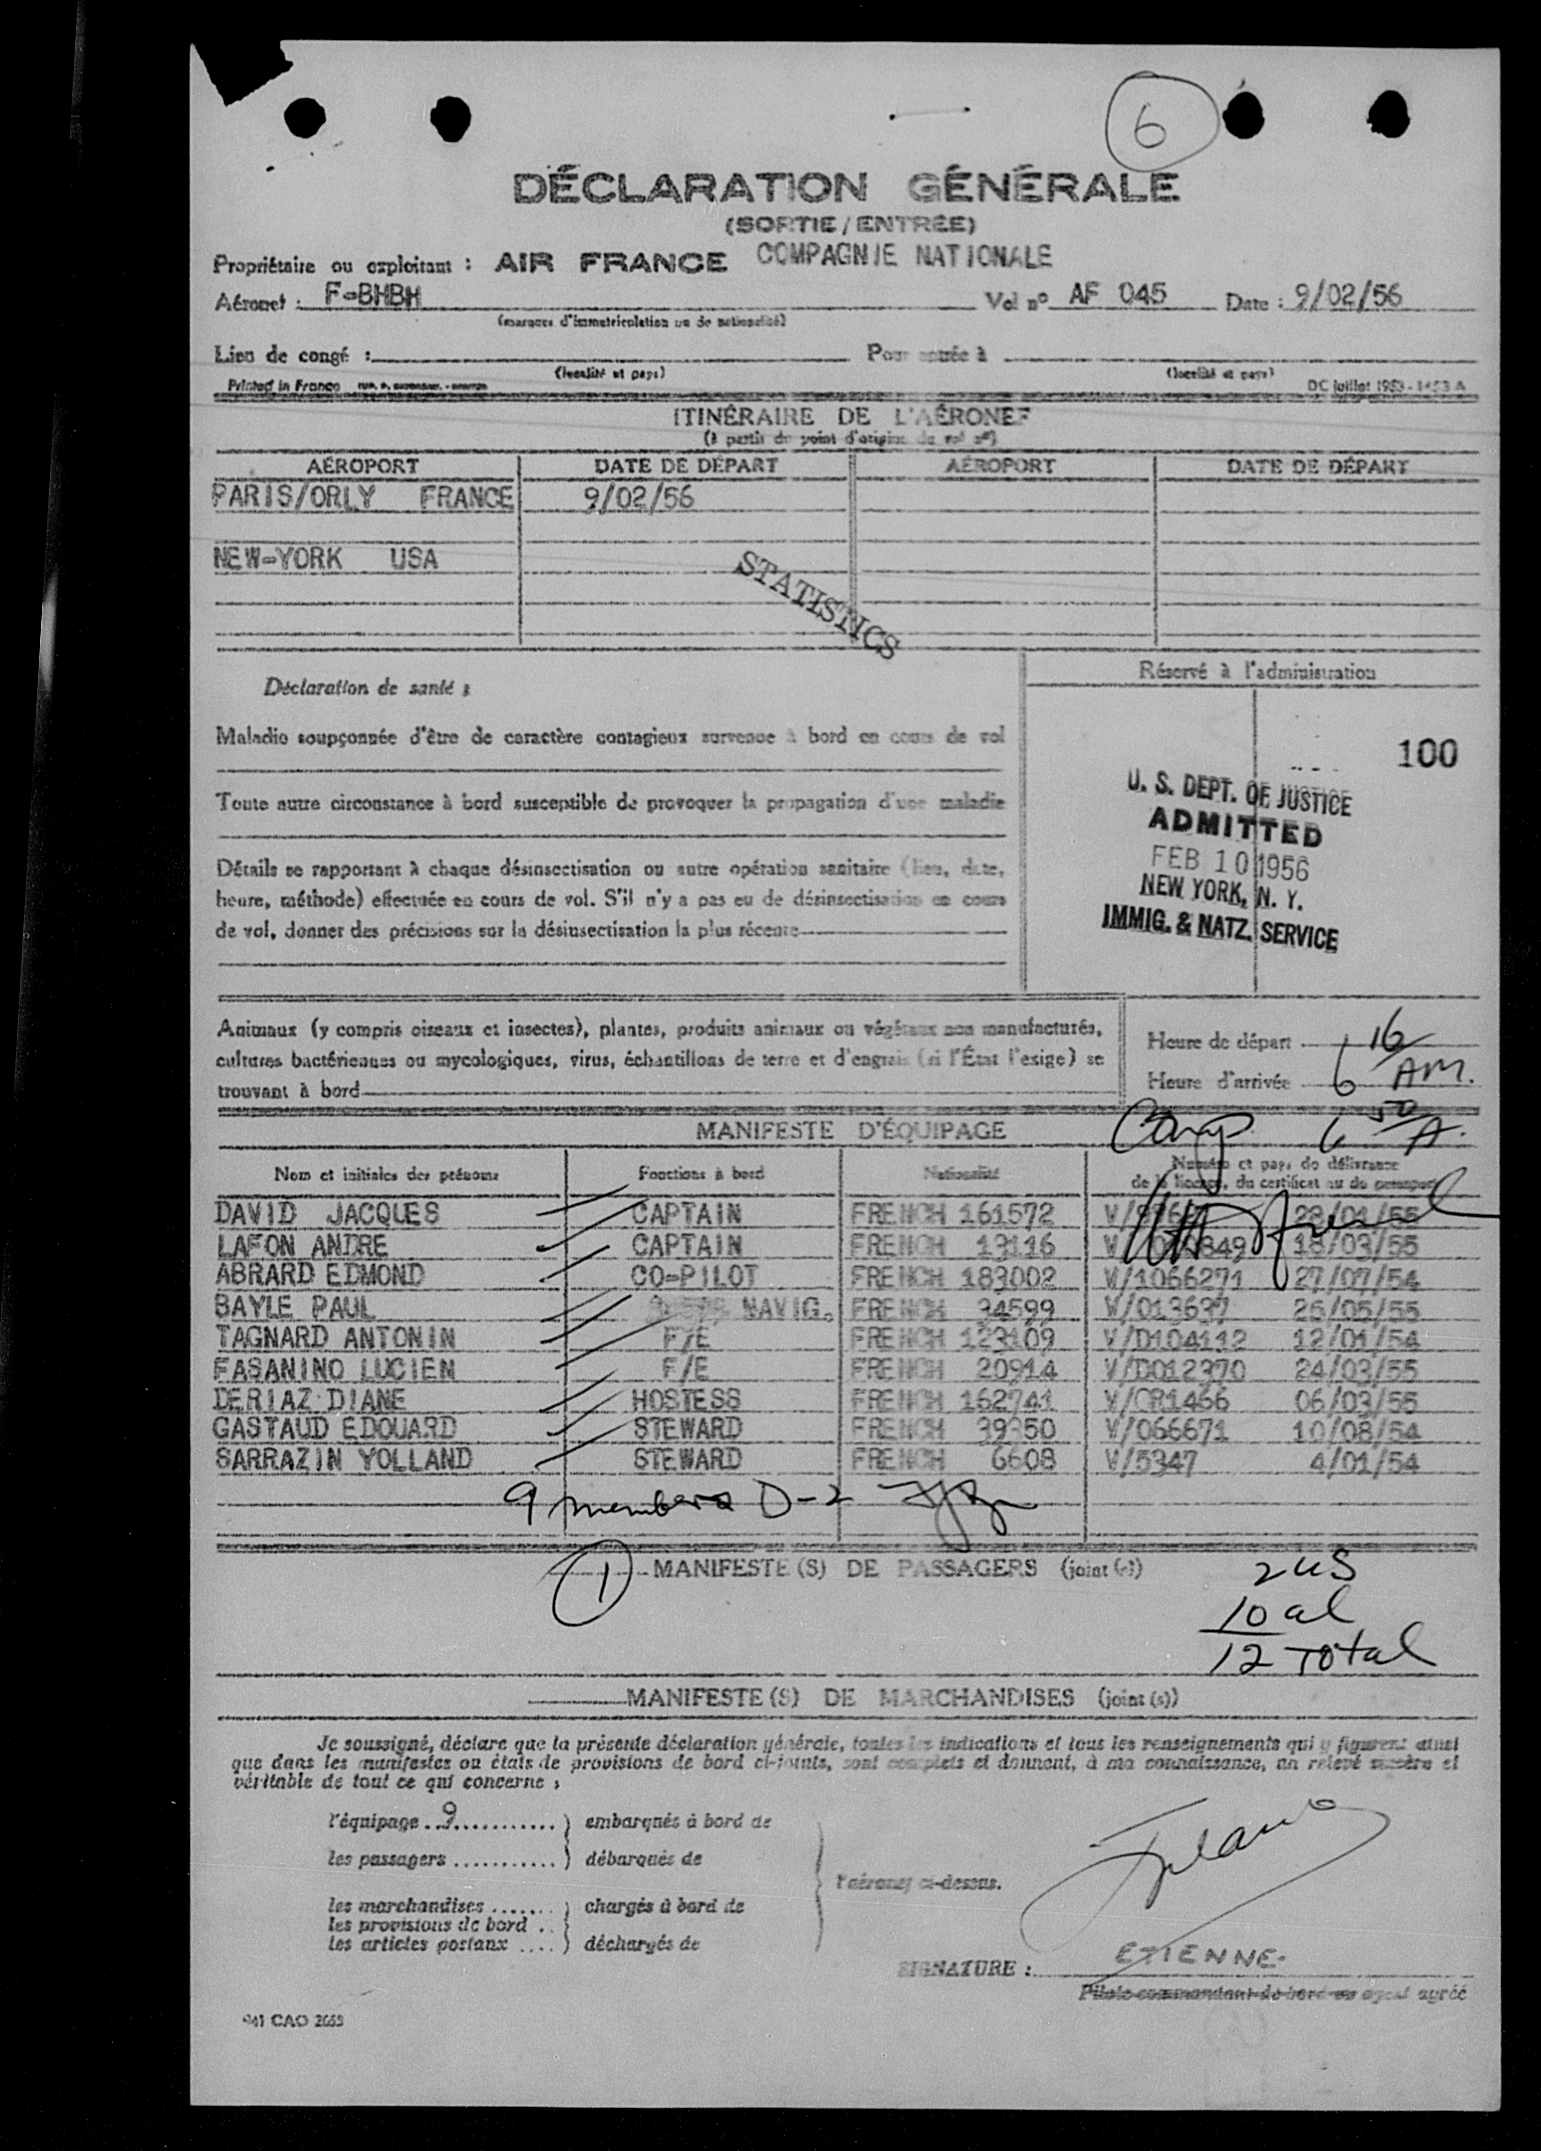 6
DÉCLARATION GÉNÉRALE
(SORTIE/ENTRÉE)
Propriétaire ou exploitant : AIR FRANCE COMPAGNIE NATIONALE
Aéronef : F-BHBH Vol nº AF 045 Date : 9/02/56
(marques d'immatriculation ou de nationalité)
Lieu de congé : Pour entrée à
(localité et pays) (localité et pays)
Printed in France DC juillet 1953 -
ITINÉRAIRE DE L'AÉRONEF
(à partir du point d'origine du vol nº)
AÉROPORT DATE DE DÉPART AÉROPORT DATE DE DÉPART
PARIS/ORLY FRANCE 9/02/56
NEW-YORK USA
STATISTICS
Réservé à l'administration
Déclaration de santé :
Maladie soupçonnée d'être de caractère contagieux survenue à bord en cours de vol
100
Toute autre circonstance à bord susceptible de provoquer la propagation d'une maladie
U. S. DEPT. OF JUSTICE
ADMITTED
FEB 10 1956
NEW YORK, N. Y.
IMMIG. & NATZ. SERVICE
Détails se rapportant à chaque désinsectisation ou autre opération sanitaire (lieu, date,
heure, méthode) effectuée en cours de vol. S'il n'y a pas eu de désinsectisation en cours
de vol, donner des précisions sur la désinsectisation la plus récente
Animaux (y compris oiseaux et insectes), plantes, produits animaux ou végétaux non manufacturés,
cultures bactériennes ou mycologiques, virus, échantillons de terre et d'engrais (si l'État l'exige) se
trouvant à bord
Heure de départ
Heure d'arrivée 6 16 AM.
6 50 A.
MANIFESTE D'ÉQUIPAGE
Nom et initiales des prénoms Fonctions à bord Nationalité Numéro et pays de délivrance
de la licence, du certificat ou du passeport
DAVID JACQUES CAPTAIN FRENCH 161572 28/01/55
LAFON ANDRE CAPTAIN FRENCH 19116 18/03/55
ABRARD EDMOND CO-PILOT FRENCH 183002 V/1066271 27/07/54
BAYLE PAUL NAVIG. FRENCH 34599 V/013637 26/05/55
TAGNARD ANTONIN F/E FRENCH 123109 V/D104112 12/01/54
FASANINO LUCIEN F/E FRENCH 20914 V/D012370 24/03/55
DERIAZ DIANE HOSTESS FRENCH 162741 V/CR1466 06/03/55
GASTAUD EDOUARD STEWARD FRENCH 39350 V/066671 10/08/54
SARRAZIN YOLLAND STEWARD FRENCH 6608 V/5347 4/01/54
9 members D-2
1 MANIFESTE(S) DE PASSAGERS (joint(s))
2 US
10 al
12 Total
MANIFESTE(S) DE MARCHANDISES (joint(s))
Je soussigné, déclare que la présente déclaration générale, toutes les indications et tous les renseignements qui y figurent ainsi
que dans les manifestes ou états de provisions de bord ci-joints, sont complets et donnent, à ma connaissance, un relevé sincère et
véritable de tout ce qui concerne :
l'équipage . . 9 . . . . . . . . . . . ) embarqués à bord de
les passagers . . . . . . . . . . . ) débarqués de
l'aéronef ci-dessus.
les marchandises . . . . . . . ) chargés à bord de
les provisions de bord . .
les articles postaux . . . . ) déchargés de
SIGNATURE : ETIENNE.
Pilote commandant de bord ou agent agréé
941 CAO 2653